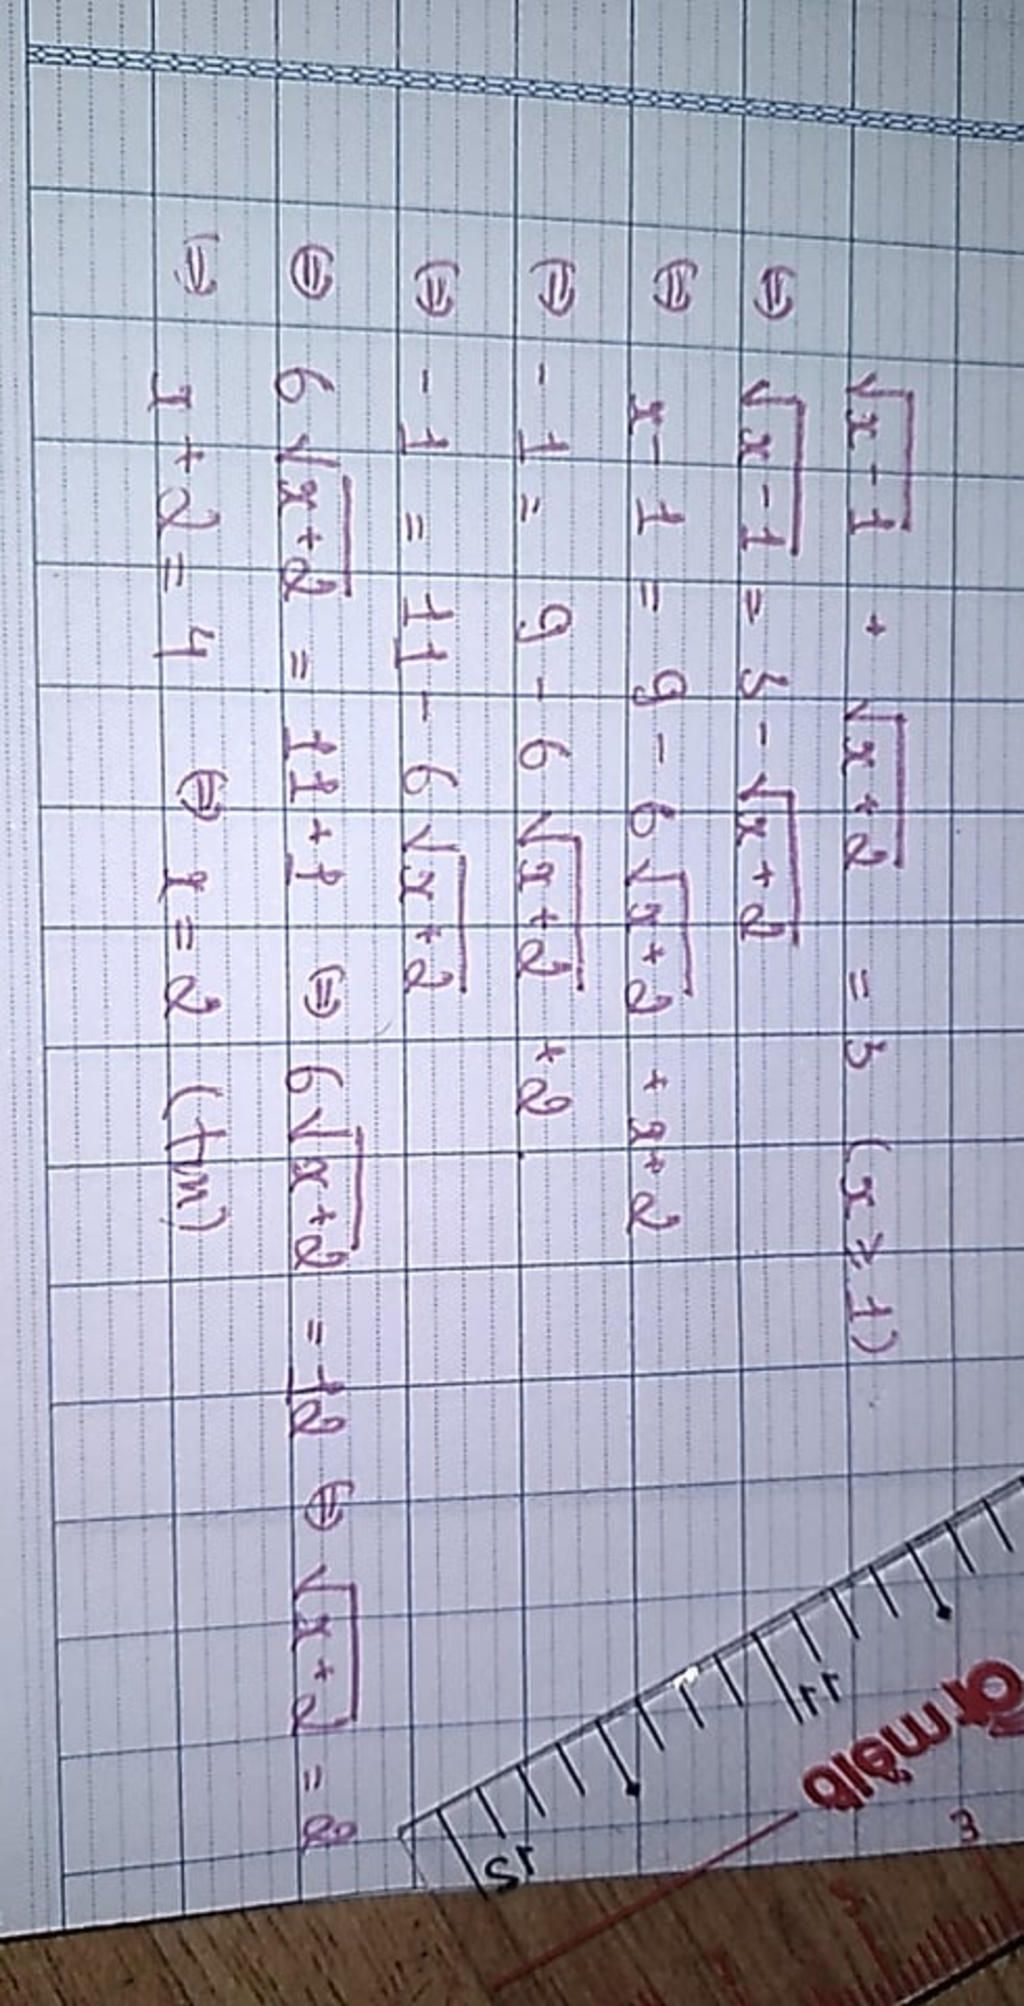 √(x-1) + √(x+2) = 3 (x ≥ 1)
⇔ √(x-1) = 3 - √(x+2)
⇔ x - 1 = 9 - 6√(x+2) + x + 2
⇔ - 1 = 9 - 6√(x+2) + 2
⇔ - 1 = 11 - 6√(x+2)
⇔ 6√(x+2) = 11 + 1 ⇔ 6√(x+2) = 12 ⇔ √(x+2) = 2
⇔ x + 2 = 4 ⇔ x = 2 (tm)
11
12
3
5